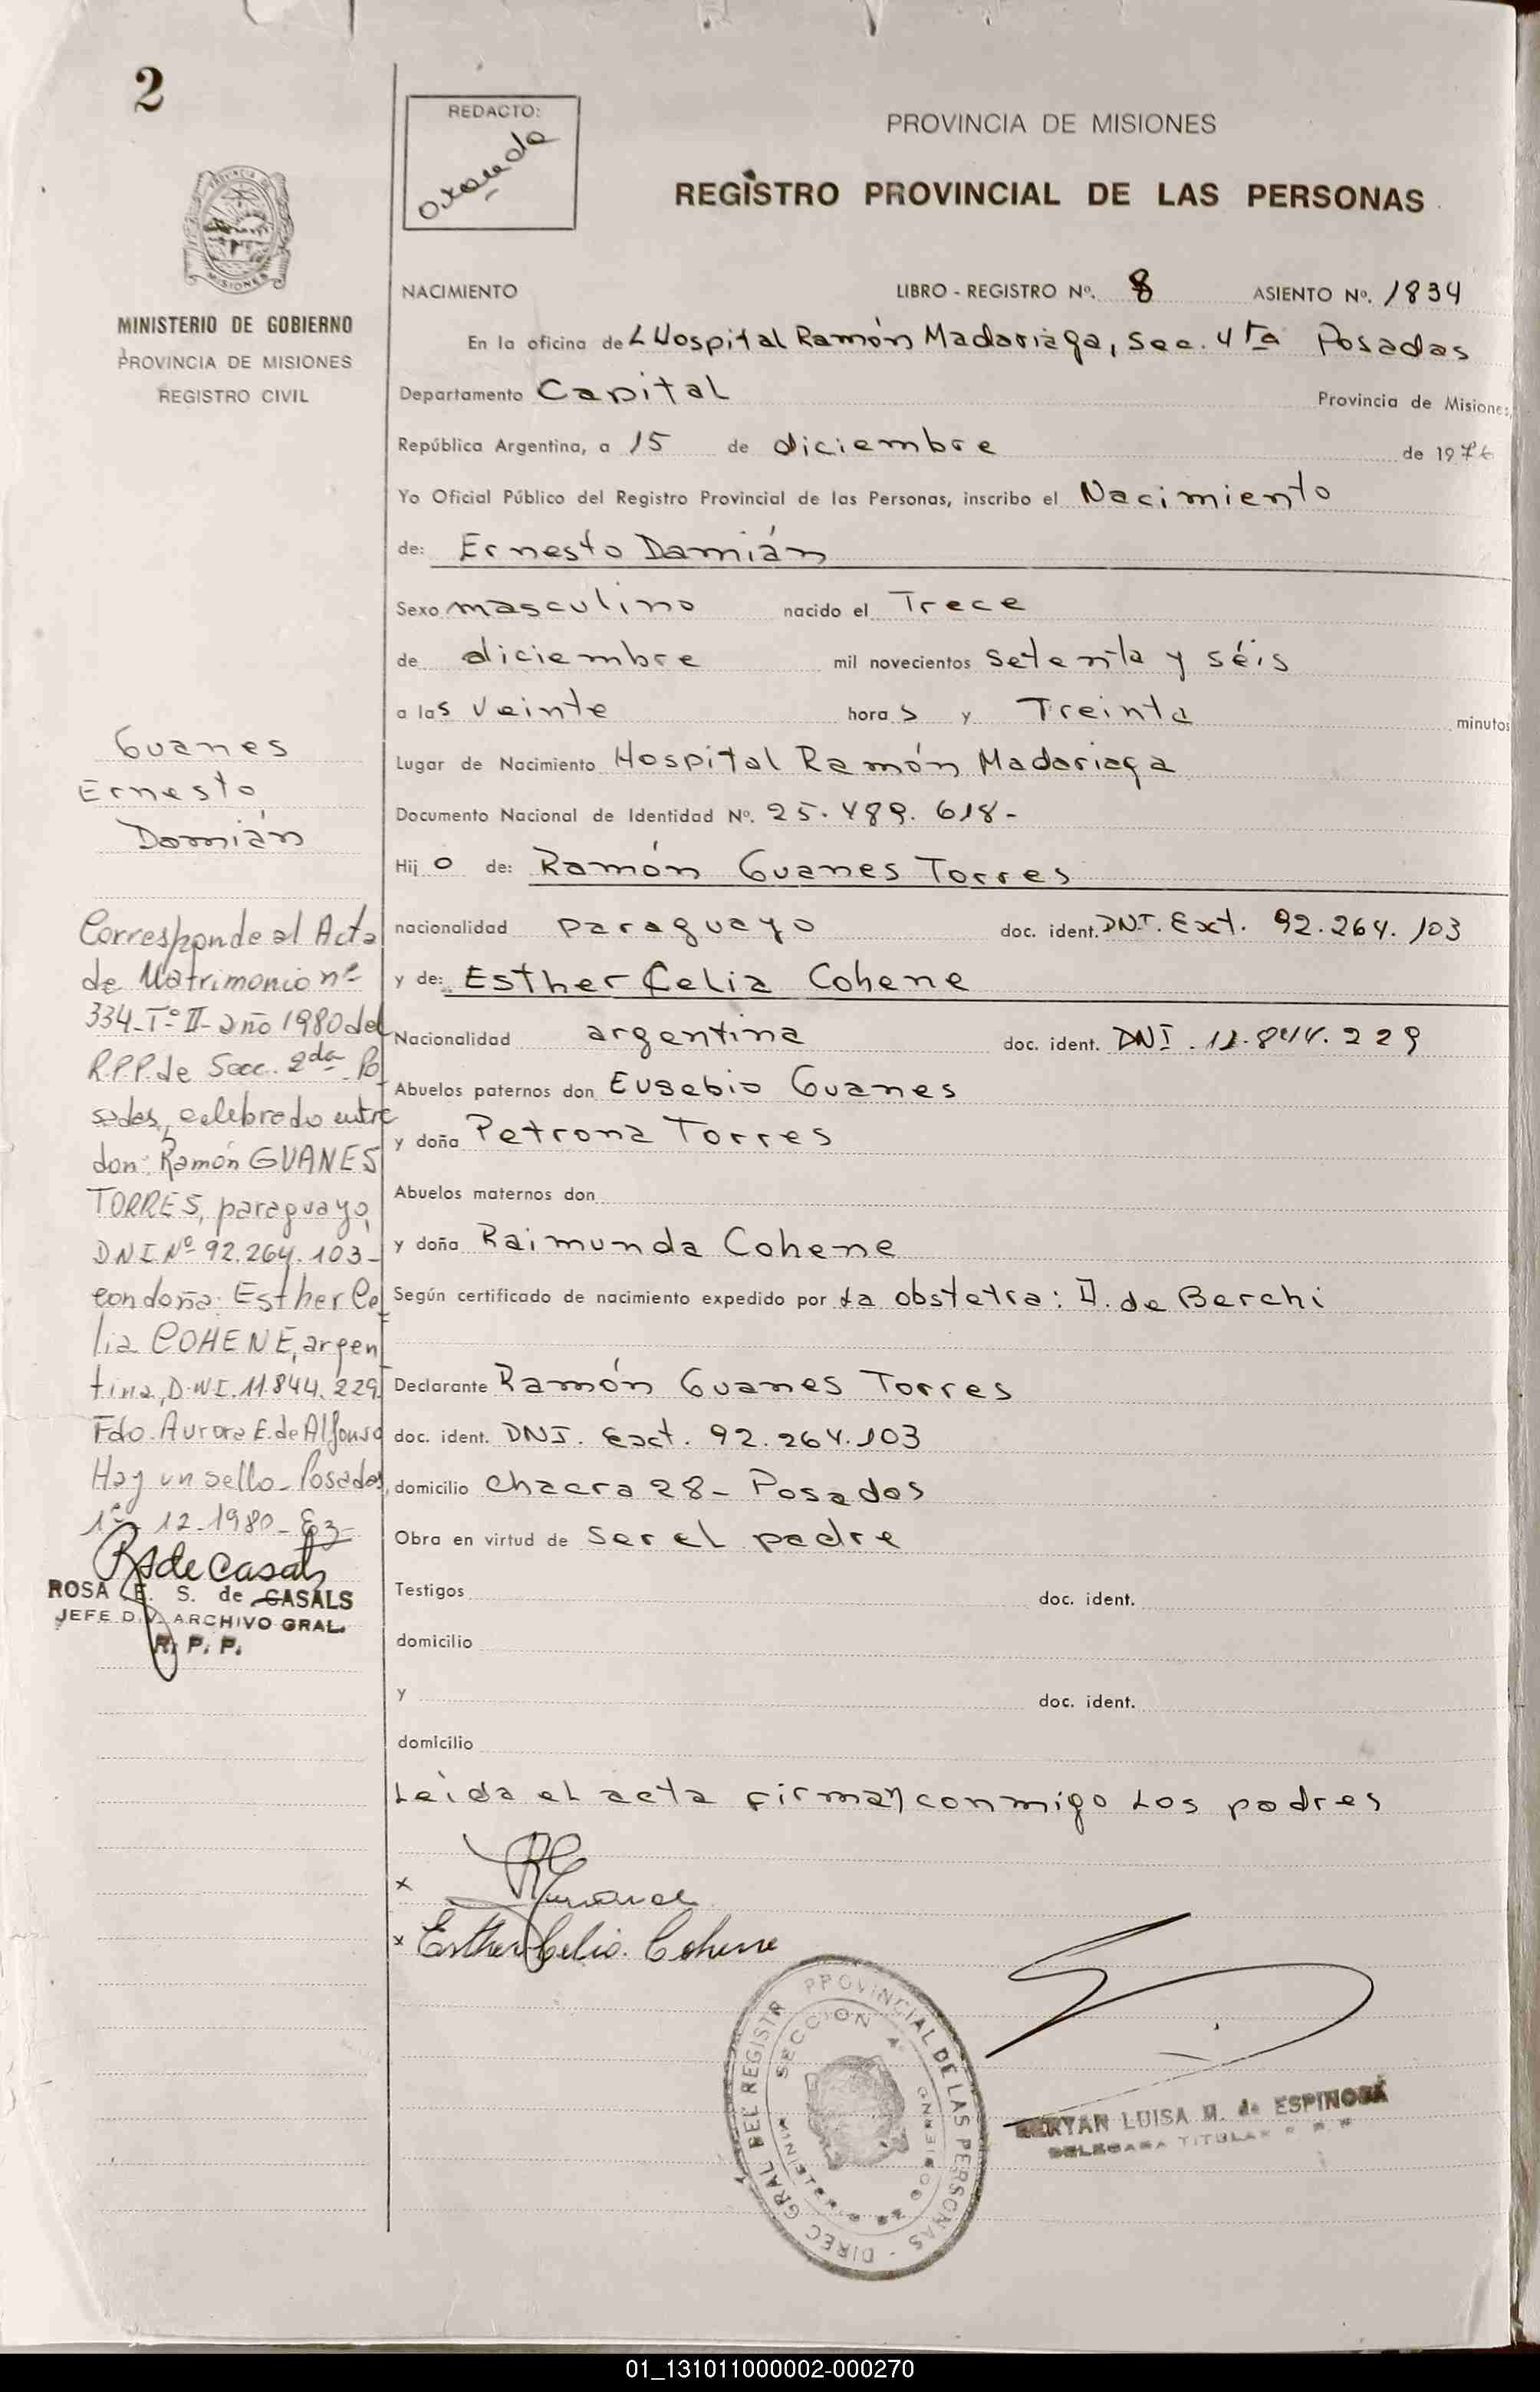 2
REDACTO:
PROVINCIA DE MISIONES
REGISTRO PROVINCIAL DE LAS PERSONAS
MISIONES
MINISTERIO DE GOBIERNO
PROVINCIA DE MISIONES
REGISTRO CIVIL
NACIMIENTO LIBRO - REGISTRO Nº. 8 ASIENTO Nº. 1834
En la oficina del Hospital Ramón Madariaga, Sec. 4ta Posadas
Departamento Capital Provincia de Misiones,
República Argentina, a 15 de diciembre de 1976
Yo Oficial Público del Registro Provincial de las Personas, inscribo el Nacimiento
de: Ernesto Damián
Sexo masculino nacido el Trece
de diciembre mil novecientos setenta y séis
a las veinte horas y Treinta minutos
Lugar de Nacimiento Hospital Ramón Madariaga
Documento Nacional de Identidad Nº. 25.489.618-
Hijo de: Ramón Guanes Torres
nacionalidad paraguayo doc. ident. DNI. Ext. 92.264.103
y de: Esther Celia Cohene
Nacionalidad argentina doc. ident. DNI. 11.844.229
Abuelos paternos don Eusebio Guanes
y doña Petrona Torres
Abuelos maternos don
y doña Raimunda Cohene
Según certificado de nacimiento expedido por la obstetra: D. de Berchi
Declarante Ramón Guanes Torres
doc. ident. DNI. Ext. 92.264.103
domicilio chacra 28- Posadas
Obra en virtud de ser el padre
Testigos doc. ident.
domicilio
y doc. ident.
domicilio
Leída el acta firman conmigo los padres
x
x Esther Celia Cohene
Guanes
Ernesto
Damián
Corresponde al Acta
de Matrimonio nº
334-Tº II-año 1980 del
R.P.P. de Secc. 2da Po
sadas, celebrado entre
don: Ramón GUANES
TORRES, paraguayo,
DNI Nº 92.264.103-
con doña: Esther Ce
lia COHENE, argen
tina, D.N.I. 11.844.229
Fdo. Aurora E. de Alfonso
Hay un sello- Posadas,
1º 12-1980-
RSde Casals
ROSA E. S. de CASALS
JEFE DIV ARCHIVO GRAL.
R. P. P.
DIREC GRAL DEL REGISTR PROVINCIAL DE LAS PERSONAS -
SECCION 4ª
MINISTERIO DE GOBIERNO
LUISA M. de ESPINOSA
DELEGADA TITULAR R. P. P.
01_131011000002-000270